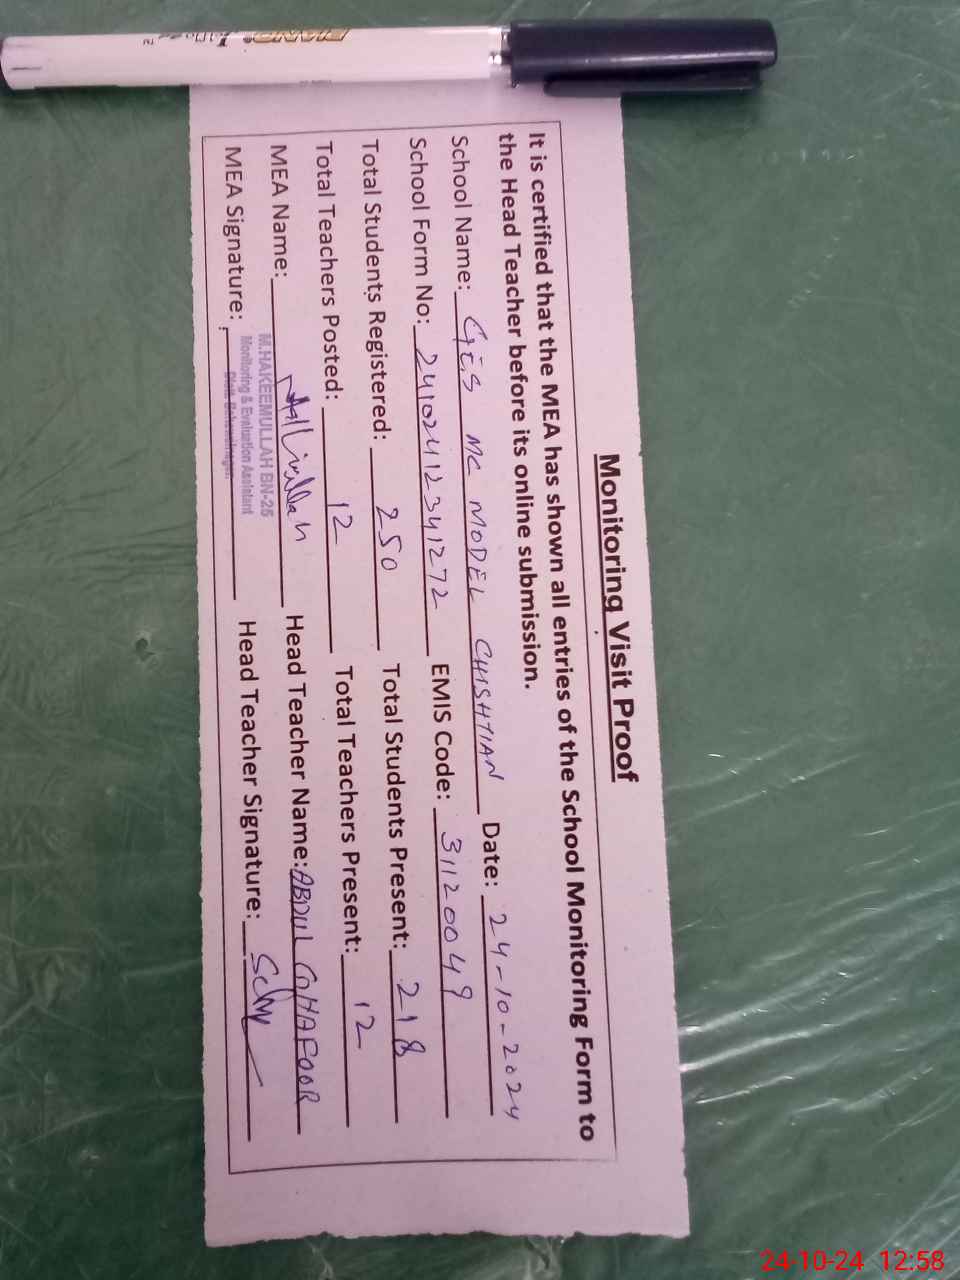 Monitoring Visit Proof
It is certified that the MEA has shown all entries of the School Monitoring Form to
the Head Teacher before its online submission.
School Name: GES MC MODEL CHISHTIAN Date: 24-10-2024
School Form No: 24102412341272 EMIS Code: 31120049
Total Students Registered: 250 Total Students Present: 218
Total Teachers Posted: 12 Total Teachers Present: 12
MEA Name: Head Teacher Name: ABDUL GHAFOOR
M.HAKEEMULLAH BN-25
MEA Signature: Head Teacher Signature:
Monitoring & Evaluation Assistant
PIANO
24-10-24 12:58